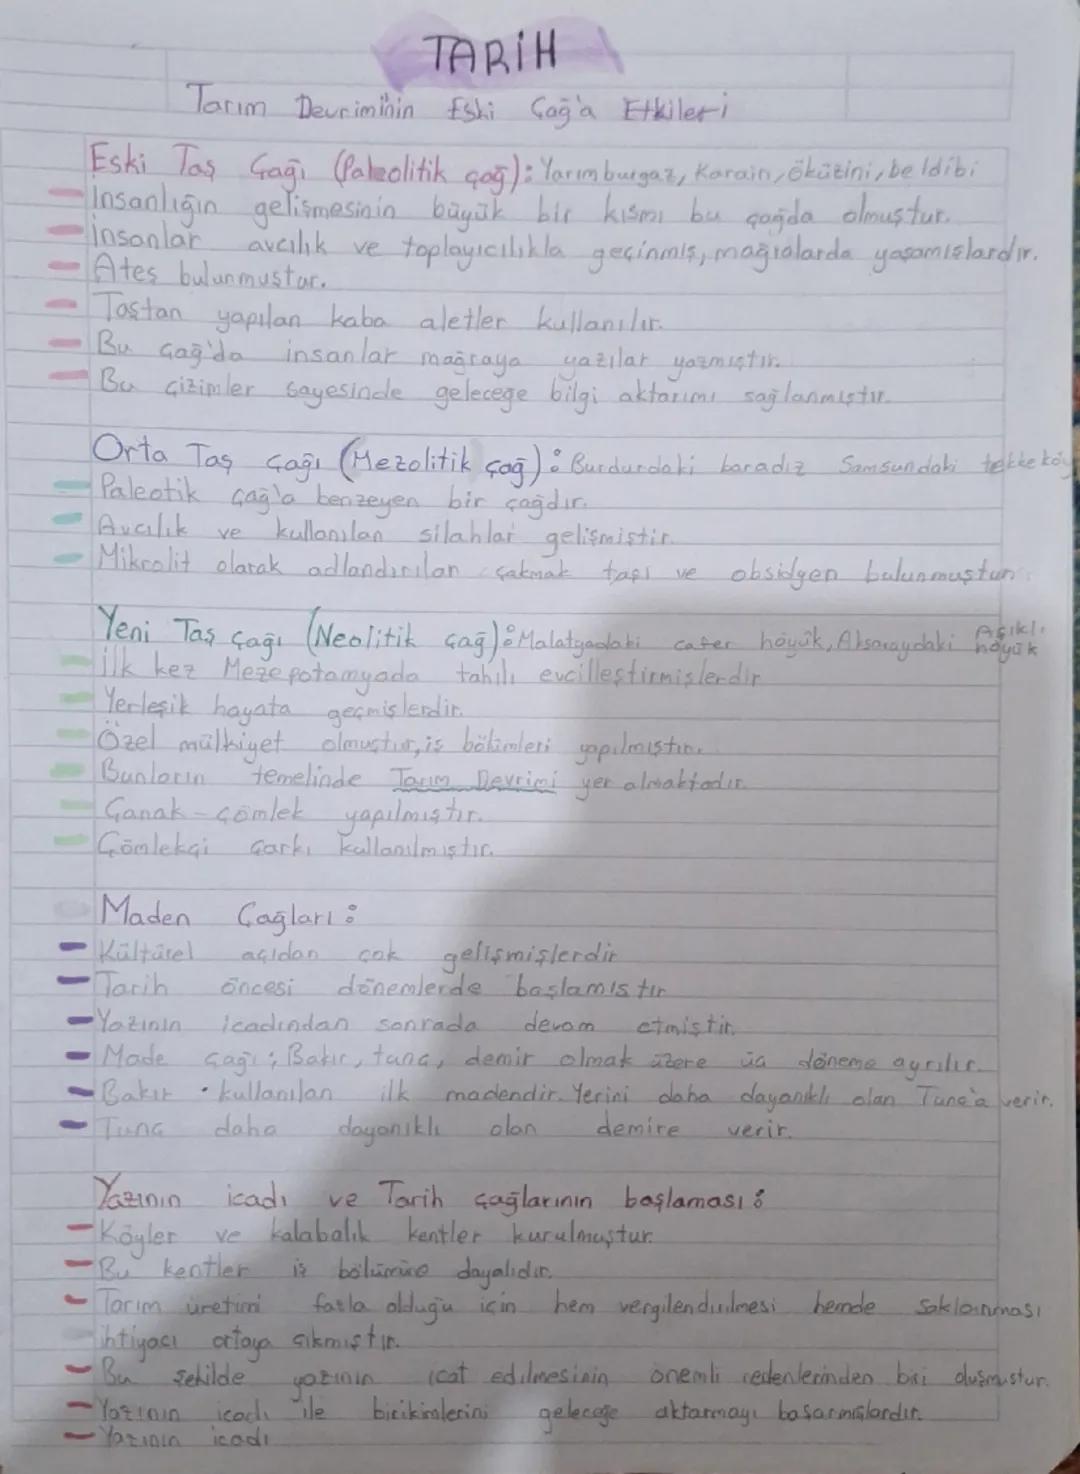 TARİH
Tarım Devriminin Eski Çağ'a Etkileri
Eski Taş Çağı (Paleolitik çağ): Yarımburgaz, Karain, öküzini, beldibi
İnsanlığın gelişmesinin büyük bir kısmı bu çağda olmuştur.
İnsanlar avcılık ve toplayıcılıkla geçinmiş, mağralarda yaşamışlardır.
Ateş bulunmuştur.
Taştan yapılan kaba aletler kullanılır.
Bu çağ'da insanlar mağraya yazılar yazmıştır.
Bu çizimler sayesinde geleceğe bilgi aktarımı sağlanmıştır.
Orta Taş çağı (Mezolitik çağ): Burdurdaki baradız Samsundaki tekkeköy
Paleotik çağ'a benzeyen bir çağdır.
Avcılık ve kullanılan silahlar gelişmiştir.
Mikrolit olarak adlandırılan çakmak taşı ve obsidyen bulunmuştur.
Yeni Taş çağı (Neolitik çağ): Malatyadaki cafer höyük, Aksaraydaki Aşıklı höyük
İlk kez Mezepotamyada tahılı evcilleştirmişlerdir
Yerleşik hayata geçmişlerdir.
Özel mülkiyet olmuştur, iş bölümleri yapılmıştır.
Bunların temelinde Tarım Devrimi yer almaktadır.
Çanak-çömlek yapılmıştır.
Çömlekçi çarkı kullanılmıştır.
Maden Çağları:
Kültürel açıdan çok gelişmişlerdir
Tarih öncesi dönemlerde başlamıştır
Yazının icadından sonrada devam etmiştir.
Made çağı; Bakır, tunç, demir olmak üzere üç döneme ayrılır.
Bakır • kullanılan ilk madendir. Yerini daha dayanıklı olan Tunç'a verir.
Tunç daha dayanıklı olan demire verir.
Yazının icadı ve Tarih çağlarının başlaması:
Köyler ve kalabalık kentler kurulmuştur.
Bu kentler iş bölümüne dayalıdır.
Tarım üretimi fazla olduğu için hem vergilendirilmesi hemde saklanması
ihtiyacı ortaya çıkmıştır.
Bu şekilde yazının icat edilmesinin önemli nedenlerinden biri oluşmuştur.
Yazının icadı ile birikimlerini geleceğe aktarmayı başarmışlardır.
Yazının icadı